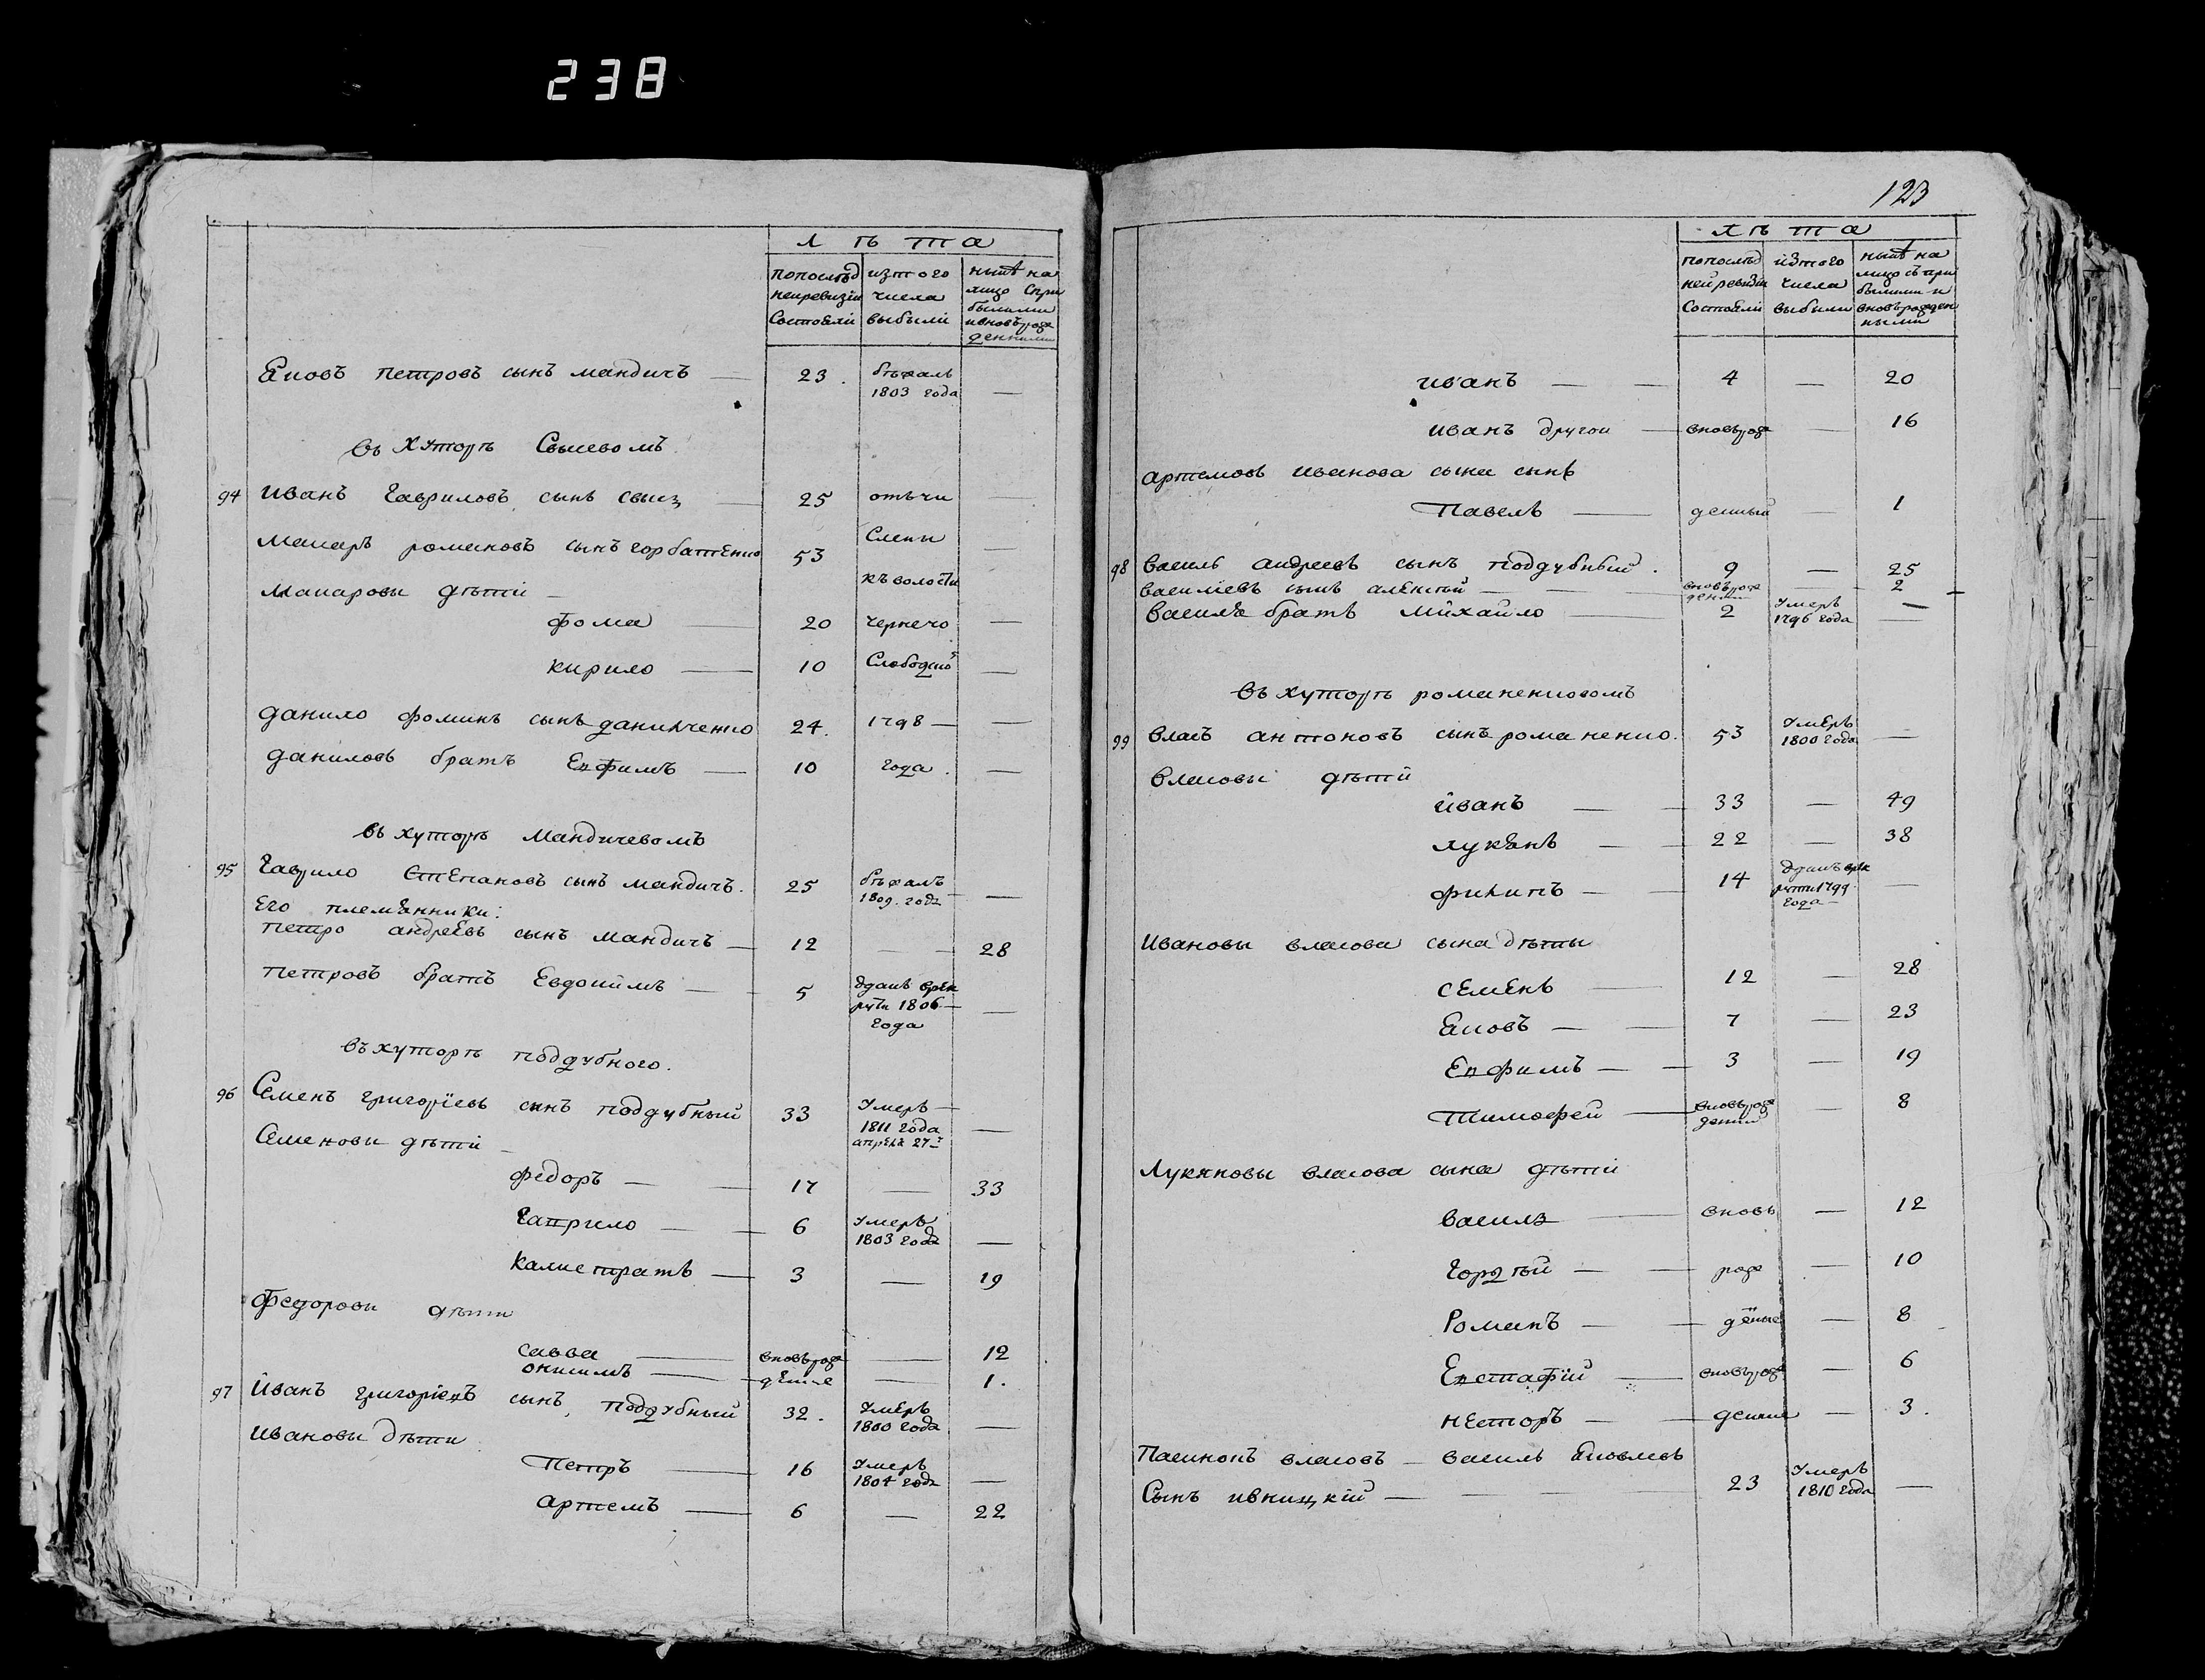 238
Л ѣ т а
попослѣд изтого нынѣ на
нейревизіи числа лицо спри
былыми
состояли выбыли ивновърож
денными
Яковъ петровъ сынъ мандичъ — 23. бѣжалъ
1803 года —
въ хуторѣ Свысевомъ
94 иванъ гавриловъ сынъ свысъ — 25 —
макаръ романовъ сынъ горбатенко 53 —
Макаровы дѣти — къ волости
фома — 20 чернечо —
кирило — 10 Слободской —
данило фоминъ сынъ данилченко 24. 1798 — —
даниловъ братъ Евфимъ — 10 года. —
въ хуторѣ мандичевомъ
95 гаврило Степановъ сынъ мандичъ. 25 бѣжалъ
1809. года —
Его племянники:
петро андреевъ сынъ мандичъ — 12 — 28
петровъ братъ Евдокимъ — 5 ѡданъ врек
руты 1806 —
года —
въ хуторѣ поддубного.
96 Семенъ григоріевъ сынъ поддубный 33 Умеръ —
1811 года —
апреля 27го
Семеновы дѣти —
федоръ — — 17 — 33
гаврило — — 6 Умеръ
1803 года —
калистратъ — 3 — 19
Федоровы дѣти
савва — вновърож — 12
онисимъ — денные — 1.
97 иванъ григоріевъ сынъ поддубный 32. Умеръ
1800 года —
ивановы дѣти
Петръ — 16 Умеръ
1804 года —
артемъ — 6 — 22
123
Л ѣ т а
попослѣд изтого нынѣ на
ней ревизіи числа лицо съ при
былыми и
состояли выбыли вновьрожден
ными
иванъ — — 4 — 20
иванъ другой — вновьрож — 16
артемовъ иванова сына сынъ
Павелъ — денный — 1
98 василь андреевъ сынъ поддубный. 9 — 25
василіевъ сынъ алексѣй — — вновърож
денный — 2
василя братъ михайло — 2 Умеръ
1796 года —
въ хуторѣ романенковомъ
99 власъ антоновъ сынъ романенко. 53 Умеръ
1800 года —
власовы дѣти
иванъ — — 33 — 49
лукянъ — — 22 — 38
филипъ — — 14 ѡданъ врек
руты 1799
года — —
ивановы власова сына дѣты
семенъ — 12 — 28
Яковъ — — 7 — 23
Евфимъ — — 3 — 19
Тимофей — вновьрож
денный — 8
Лукяновы власова сына дѣти
василь — вновь — 12
гордѣй — — рож — 10
Романъ — — деные — 8
Евстафій — вновърож — 6
несторъ — — денные — 3.
Пасинокъ власовъ — василь Яковлевъ
сынъ ивницкій — — — — 23 Умеръ
1810 года —